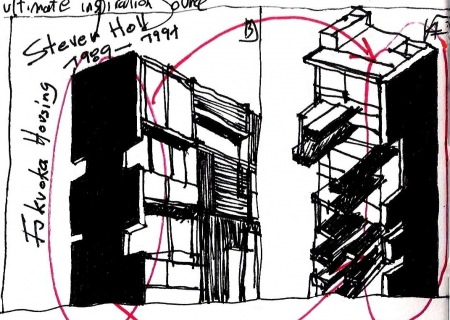 ultimate inspiration Source
Steven Holl
1989 → 1991
Fukuoka Housing
B
A